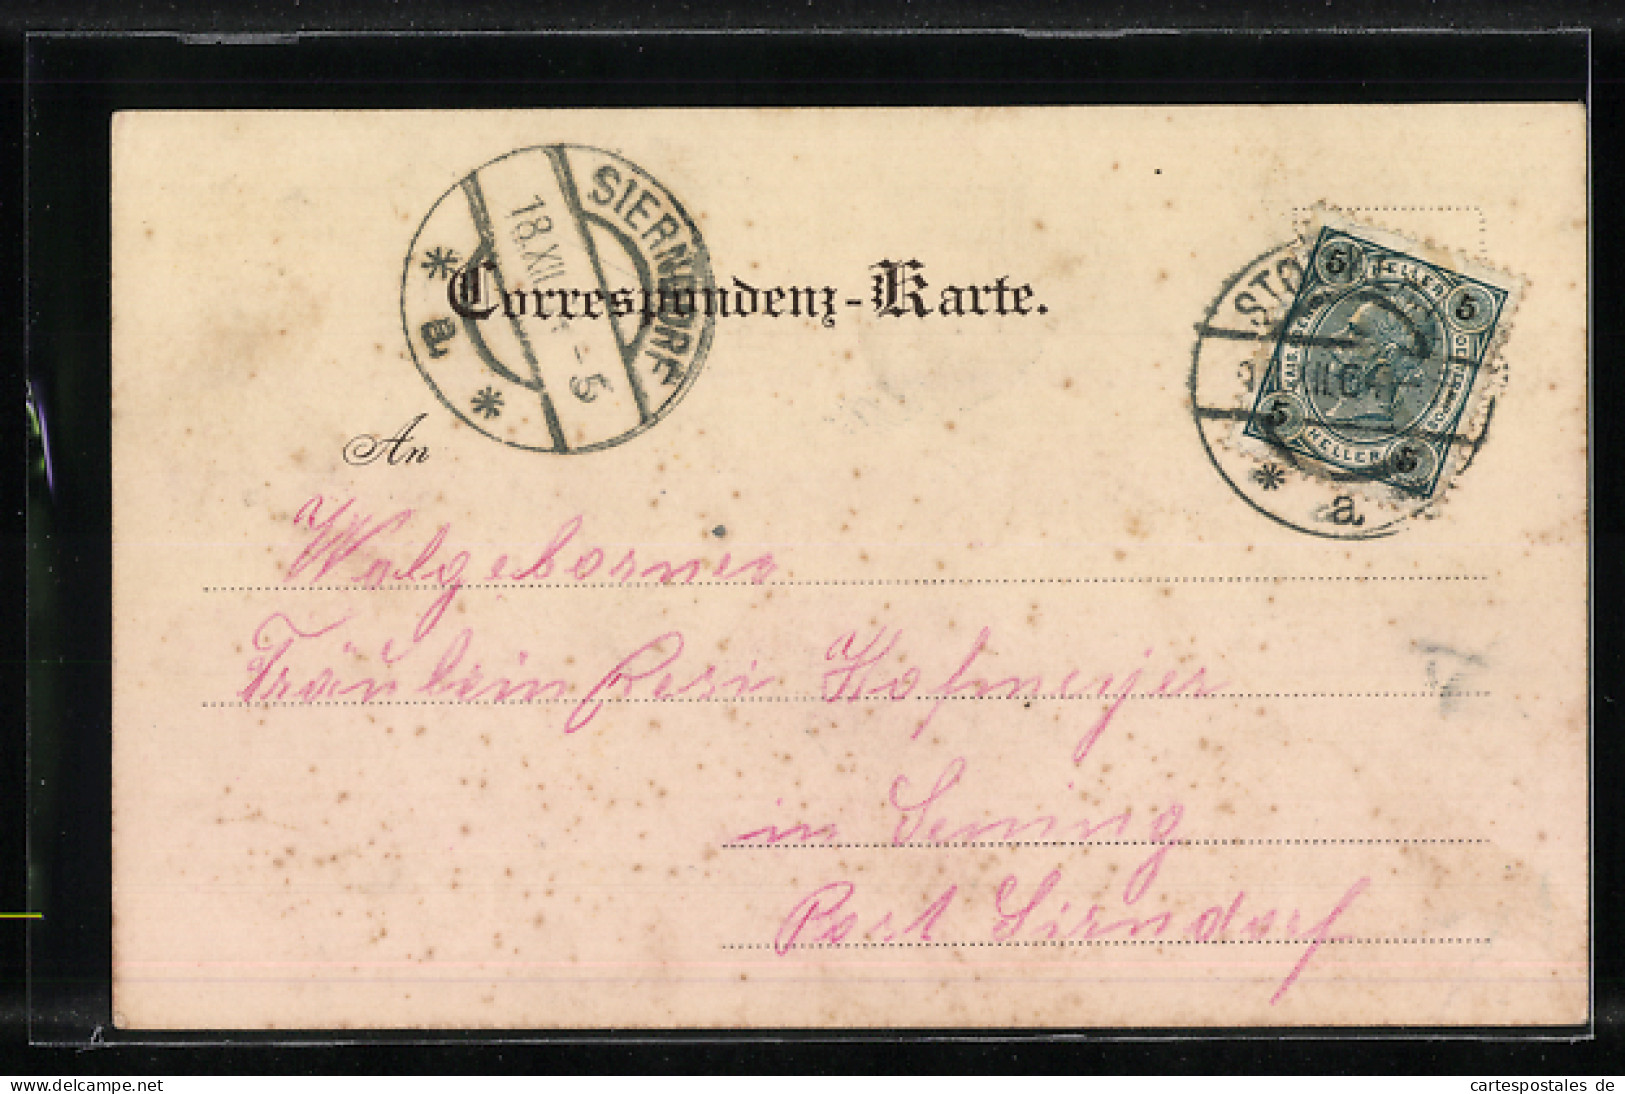 SIERNDORF
18.XII
-5
a
Correspondenz-Karte.
STO
5 HELLER 5
5 HELLER 5
a
An
Wolgeborner
Fräulein Resi Hofmeyer
in Sening
Post Sirndorf
delcampe.net
cartespostales de